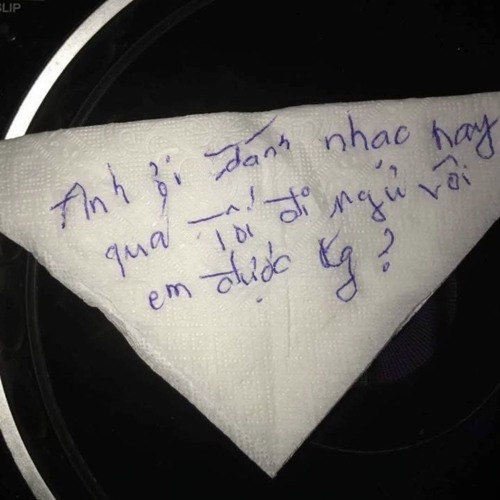 SLIP
Anh ơi đánh nhac hay
quá Tối đi ngủ vôi
em được kg?